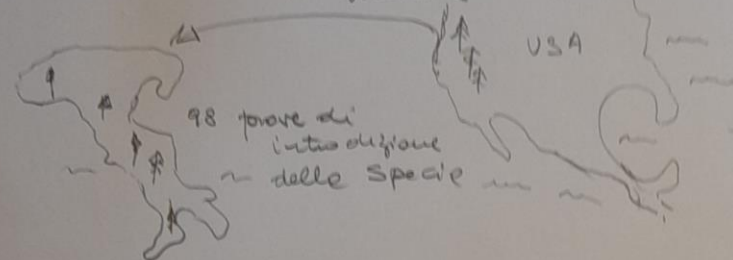 USA
98 prove di
introduzione
delle Specie